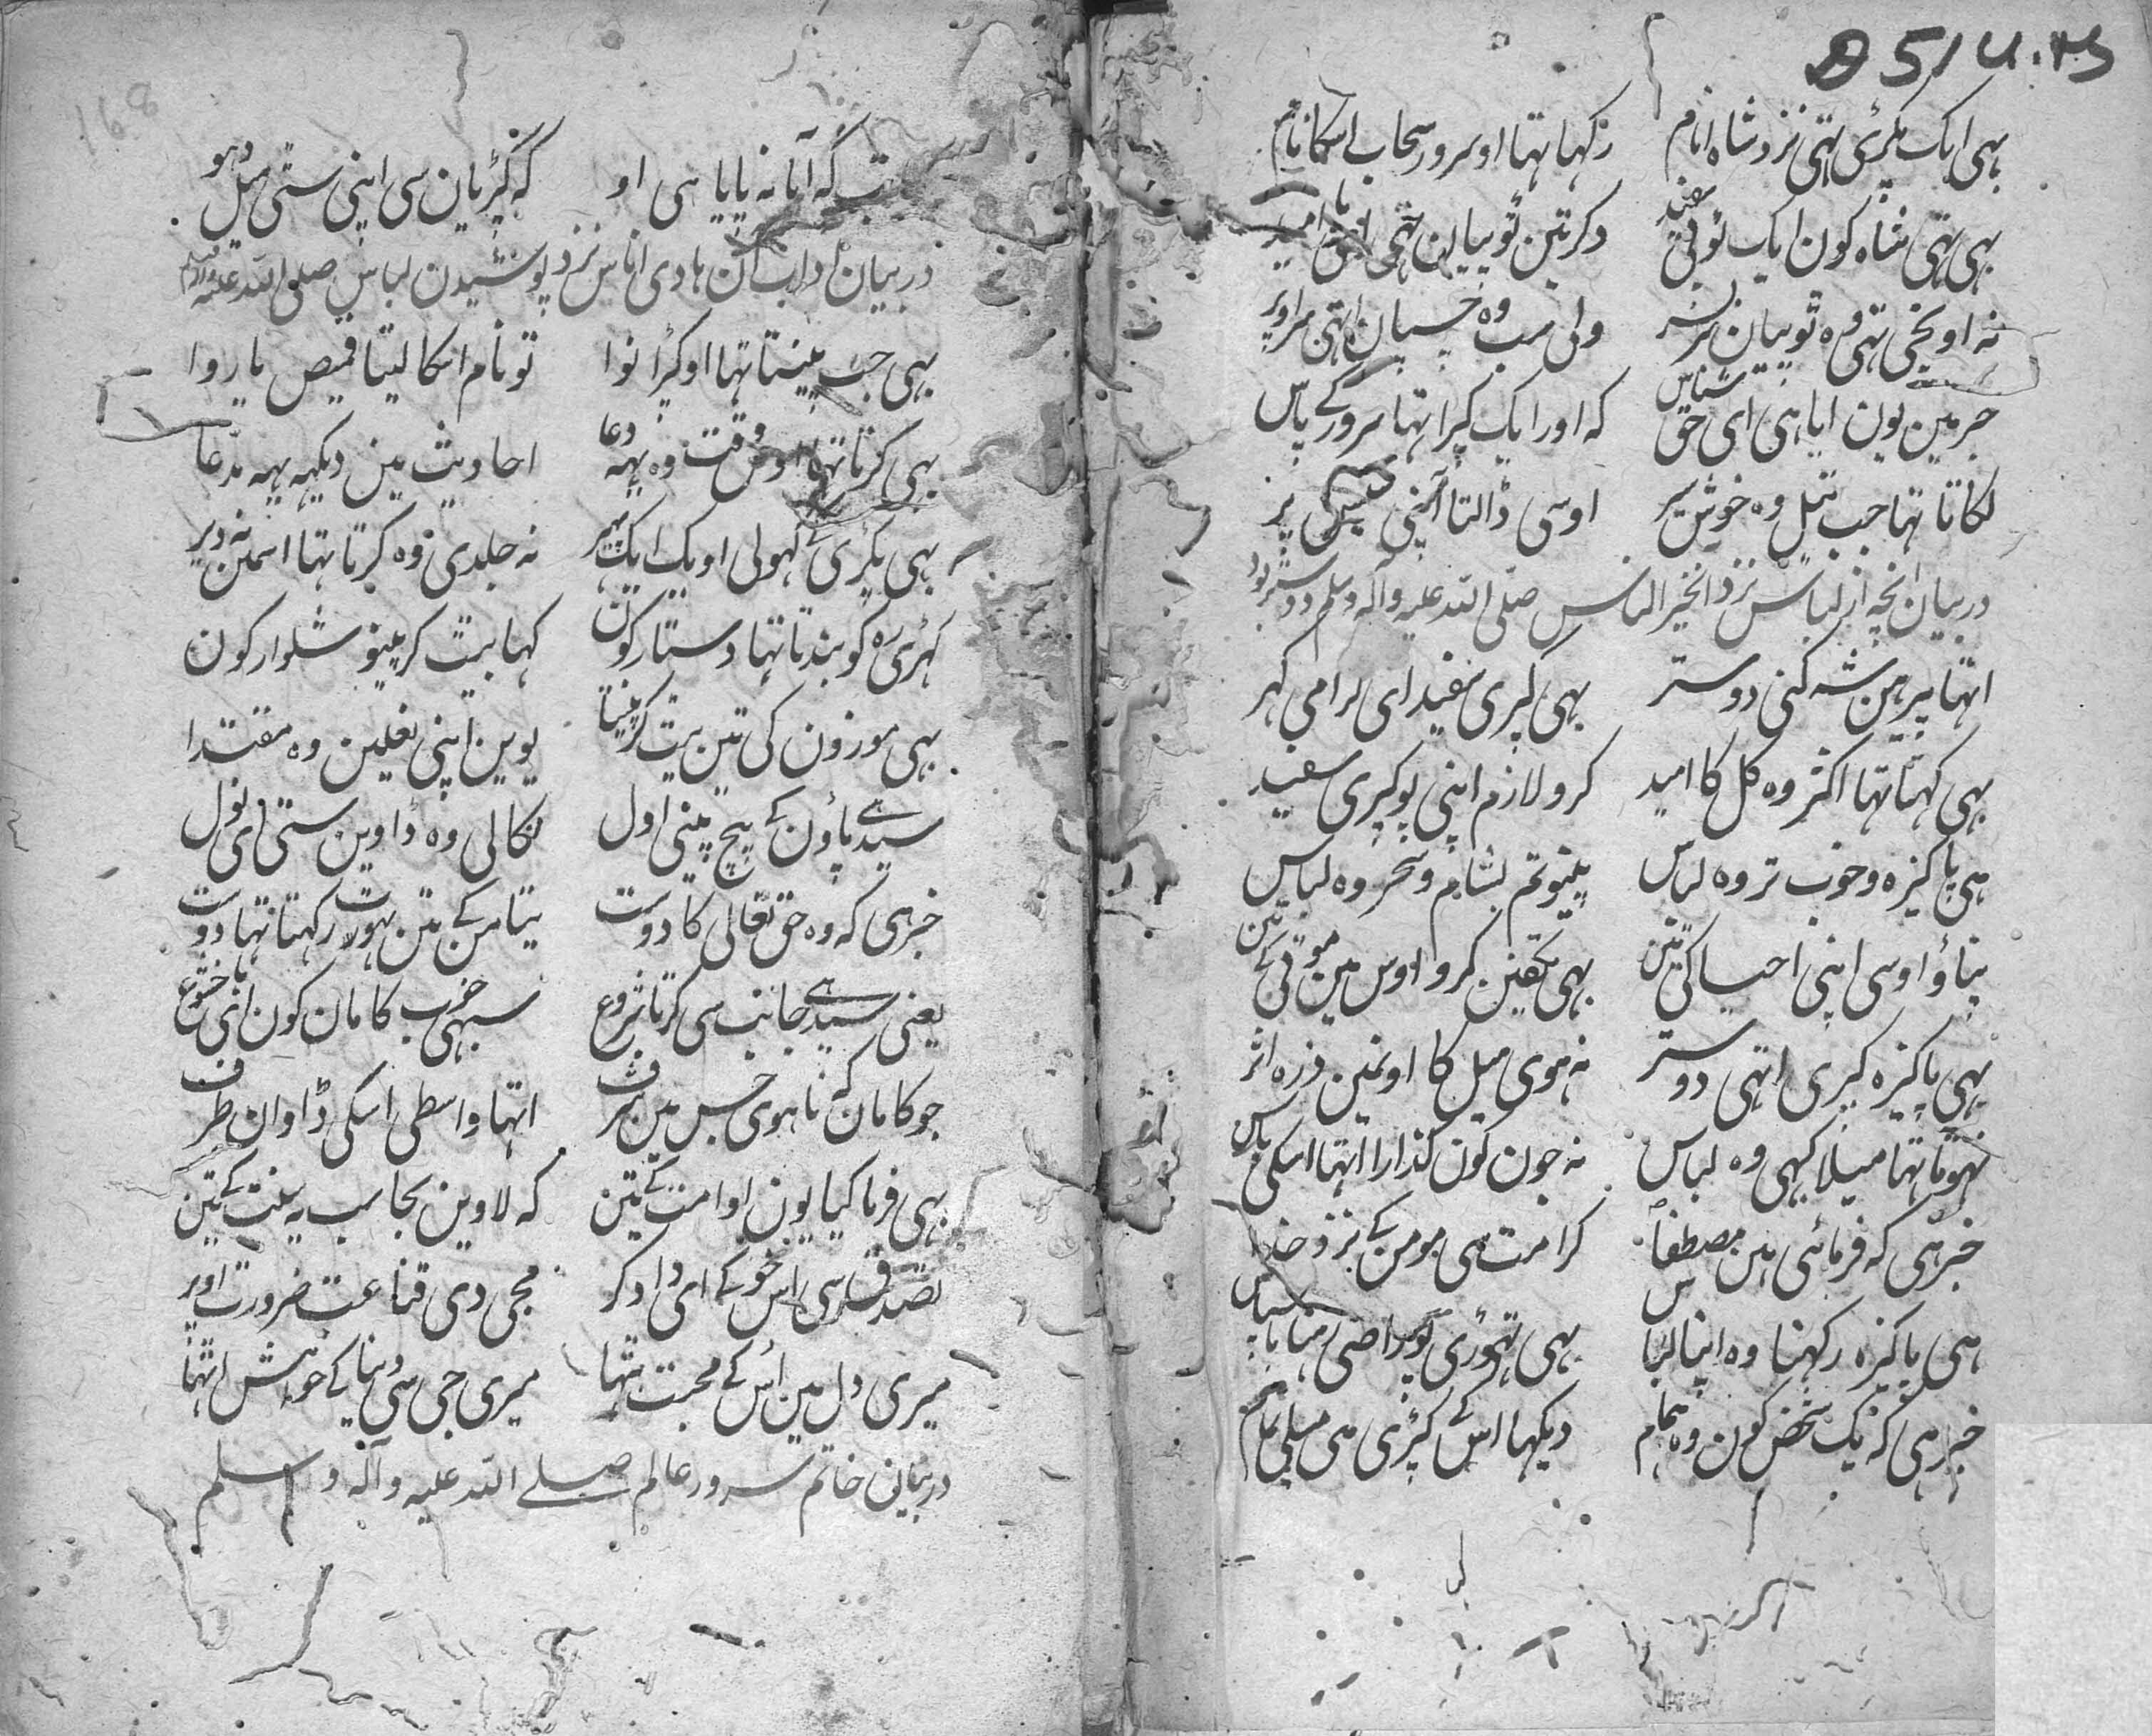 بہی ایک پکڑی تہی نزد شاہ انام رکہا تہا او سرور سحاب اسکا نام
بہی تہی شاہ کون ایک ٹوپی سفید دکر تین ٹوپیان تہی
نہ اونچی تہی وہ ٹوپیان ولی سب وہ چسپان اتہی
خبر مین یون ایا ہی ای حق شناس کہ اور ایک کپڑا تہا سرور کے پاس
لکاتا تہا جب تیل وہ خوش سیر اوسی ڈالتا اپنی پر
در بیان انچہ از لباس نزد انخیر الناس صلی اللہ علیہ وآلہ وسلم دوستر بود
اتہا پیرہن شہ کنی دوستر بہی کپری سفید ای کرامی کہر
بہی کہتا تہا اکثر وہ کل کا امید کرو لازم اپنی پو کپری سفید
ہی پاکیزہ وخوب تر وہ لباس پینو تم بشام و سحر وہ لباس
پناؤ اوسی اپنی احیا کی تین بہی تکفین کرو اوس مین موتی کے تین
بہی پاکیزہ کپری اتہی دوستر نہ ہوی میل کا اونمین ذرہ اثر
نہوتا تہا میلا کبہی وہ لباس نہ جون کون گذارا اتہا اسکی پاس
خبر ہی کہ فرمائی ہین مصطفا کرامت سی مومن کے نزد خدا
ہی پاکیزہ رکہنا وہ اپنا لباس بہی تہوڑی پو راضی رہنا با سپاس
خبر ہی کہ یک شخص کون وہ ہمام دیکہا اس کے کپڑی ہی میلی تمام
کہ آیا نہ پایا ہی او کہ کپڑیان سی اپنی ستی میل دہو
در بیان اداب آن ہادی اناس نزد پوشیدن لباس صلی اللہ علیہ وآلہ وسلم
بہی جب پینتا تہا او کپڑا نوا تو نام اسکا لیتا قمیص یا ردا
بہی کرتا تہا اوس وقت وہ یہہ دعا احادیث مین دیکہہ یہہ مدعا
بہی پکڑی کے کہولی او یک ایک پہیر نہ جلدی وہ کرتا تہا اسمین نہ دیر
کہڑی رہ کو بندتا تہا دستار کون کہا بیت کر پینو شلوار کون
بہی موزون کی تین بیت کر پینتا یوین اپنی نعلین وہ مقتدا
سیدے پاؤن کے بیچ پینی اول نکالی وہ ڈاوین ستی ای نول
خبر ہی کہ وہ حق تعالی کا دوست تیامن کے تین بہوت رکہتا تہا دوست
یعنی سیدے جانب سی کرتا شروع سبہی خوب کامان کون ای با خشوع
جو کامان کہ نا ہوی جس مین شرف اتہا واسطی اسکی ڈاوان طرف
بہی فرما کیا یون او امت کے تین کہ لاوین بجا سب یہ سنت کے تین
تصدق سی اس خو کے ای دادکر مجی دی قناعت ضرورت اوپر
میری دل مین اس کے محبت بتہا میری جی سی دنیا کے خواہش اتہا
در بیان خاتم سرور عالم صلے اللہ علیہ وآلہ وسلم